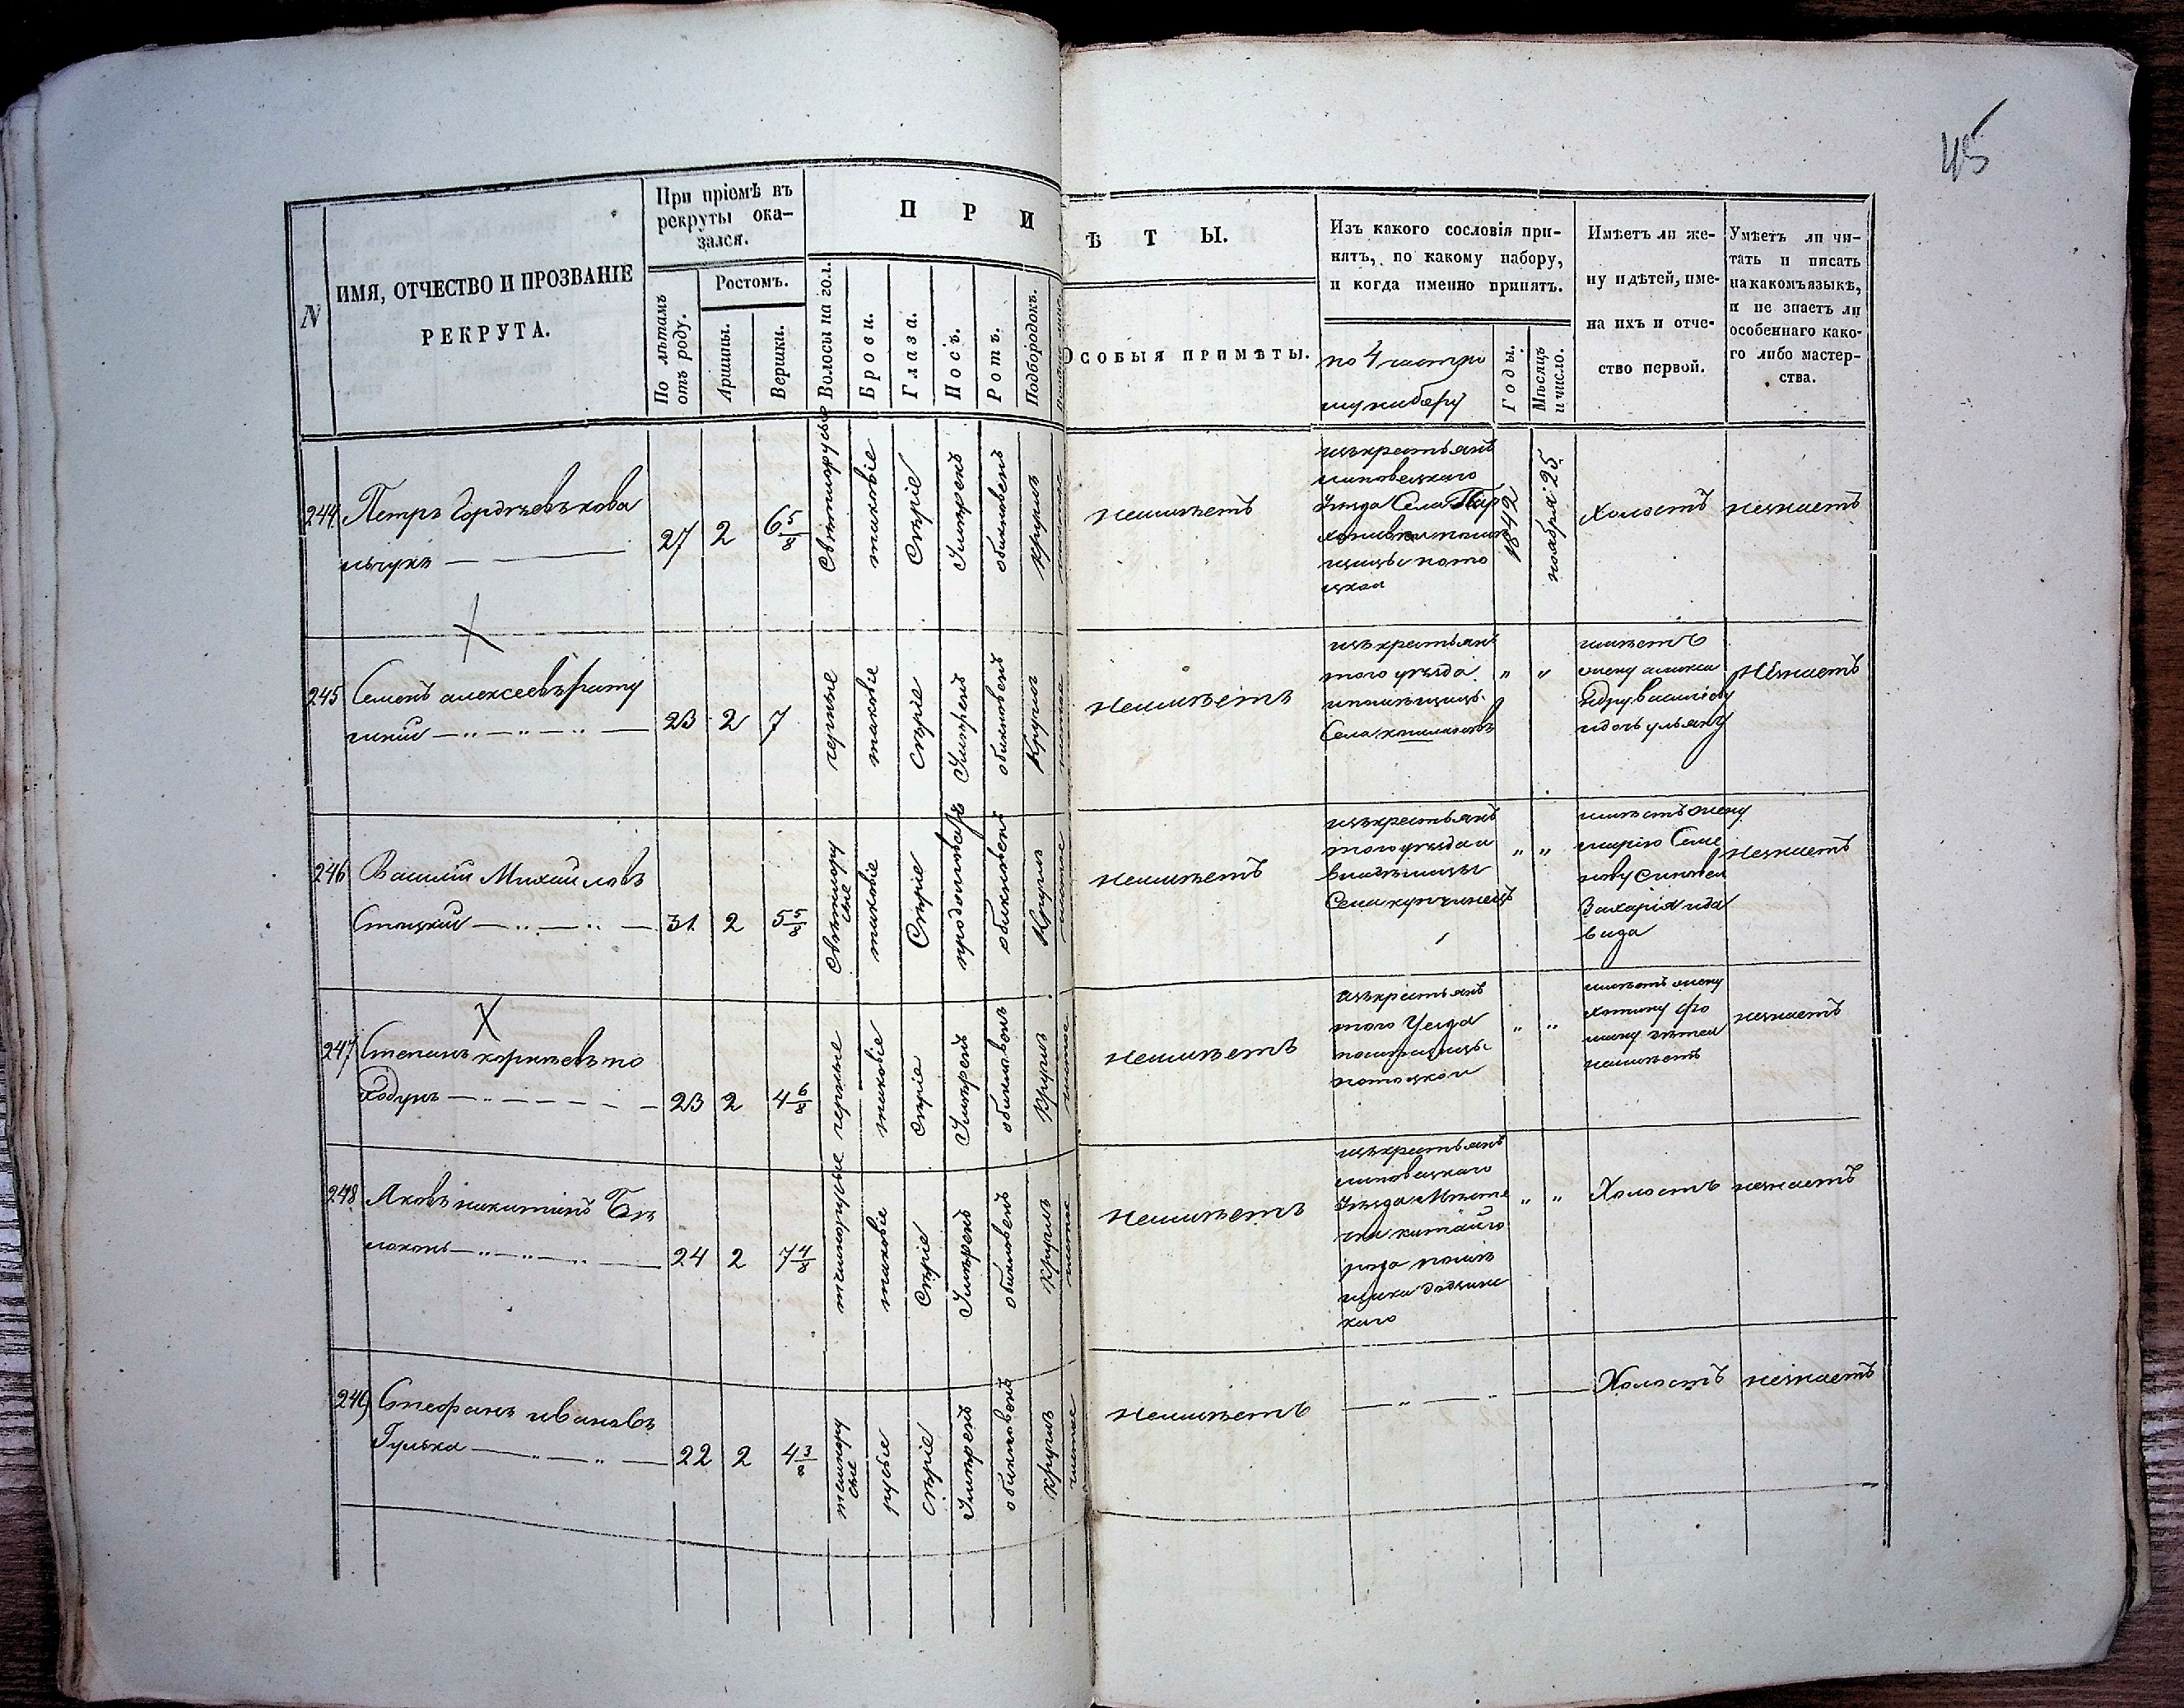 45
N
ИМЯ, ОТЧЕСТВО И ПРОЗВАНІЕ
РЕКРУТА.
При пріемѣ въ
рекруты ока-
зался.
По лѣтамъ
отъ роду.
Ростомъ.
Аршины.
Вершки.
П Р И
Волосы на гол.
Брови.
Глаза.
Носъ.
Ротъ.
Подбородокъ.
Ѣ Т Ы.
Особыя примѣты.
Изъ какого сословія при-
нятъ, по какому набору,
и когда именно принятъ.
по 4 частно
му набору
Годы.
Мѣсяцъ
и число.
Имѣетъ ли же-
ну и дѣтей, име-
на ихъ и отче-
ство первой.
Умѣетъ ли чи-
тать и писать
на какомъ языкѣ,
и не знаетъ ли
особеннаго како-
го либо мастер-
ства.
244
Петръ Гордѣевъ кова
льчукъ
27
2
6 5/8
Свѣтлорусые
таковіе
Сѣріе
Умѣренъ
обикновенъ
круглъ
неимѣетъ
изъ крестьянъ
уѣзда Села
1842
ноября 25
Холостъ
незнаетъ
245
Семенъ алексеевъ
23
2
7
черные
таковіе
сѣріе
Умѣренъ
обикновенъ
круглъ
Неимѣетъ
изъ крестьянъ
того уѣзда
Села
имѣетъ
жену алекса
ндру василіеву
идочь ульяну
Незнаетъ
246
Василій Михайловъ
Стоцкій
31
2
5 5/8
Свѣтлору
сые
таковіе
Сѣріе
продолговатъ
обикновенъ
Круглъ
неимѣетъ
изъ крестьянъ
того уѣзда и
владѣлицы
Села купчинецъ
имѣетъ жену
марію Семе
нову Синовей
Захарія ида
вида
незнаетъ
247
Степанъ корнѣевъ по
ходунъ
23
2
4 6/8
черные
таковіе
сѣріе
Умѣренъ
обикновенъ
круглъ
неимѣетъ
изъ крестьянъ
того Уезда
помѣщицы
потоцкой
имѣетъ жену
дѣтей
неимѣетъ
незнаетъ
248
Яковъ никитинъ Бѣ
локонь
24
2
7 4/8
темнорусые
таковіе
Сѣріе
Умѣренъ
обикновенъ
круглъ
неимѣетъ
изъ крестьянъ
уѣзда Мѣсте
чка китайго
рода помѣ
щика
Холостъ
незнаетъ
249
Стефанъ ивановъ
Гулька
22
2
4 3/8
темнору
сые
русые
сѣріе
Умѣренъ
обикновенъ
круглъ
чистое
неимѣетъ
Холостъ
незнаетъ